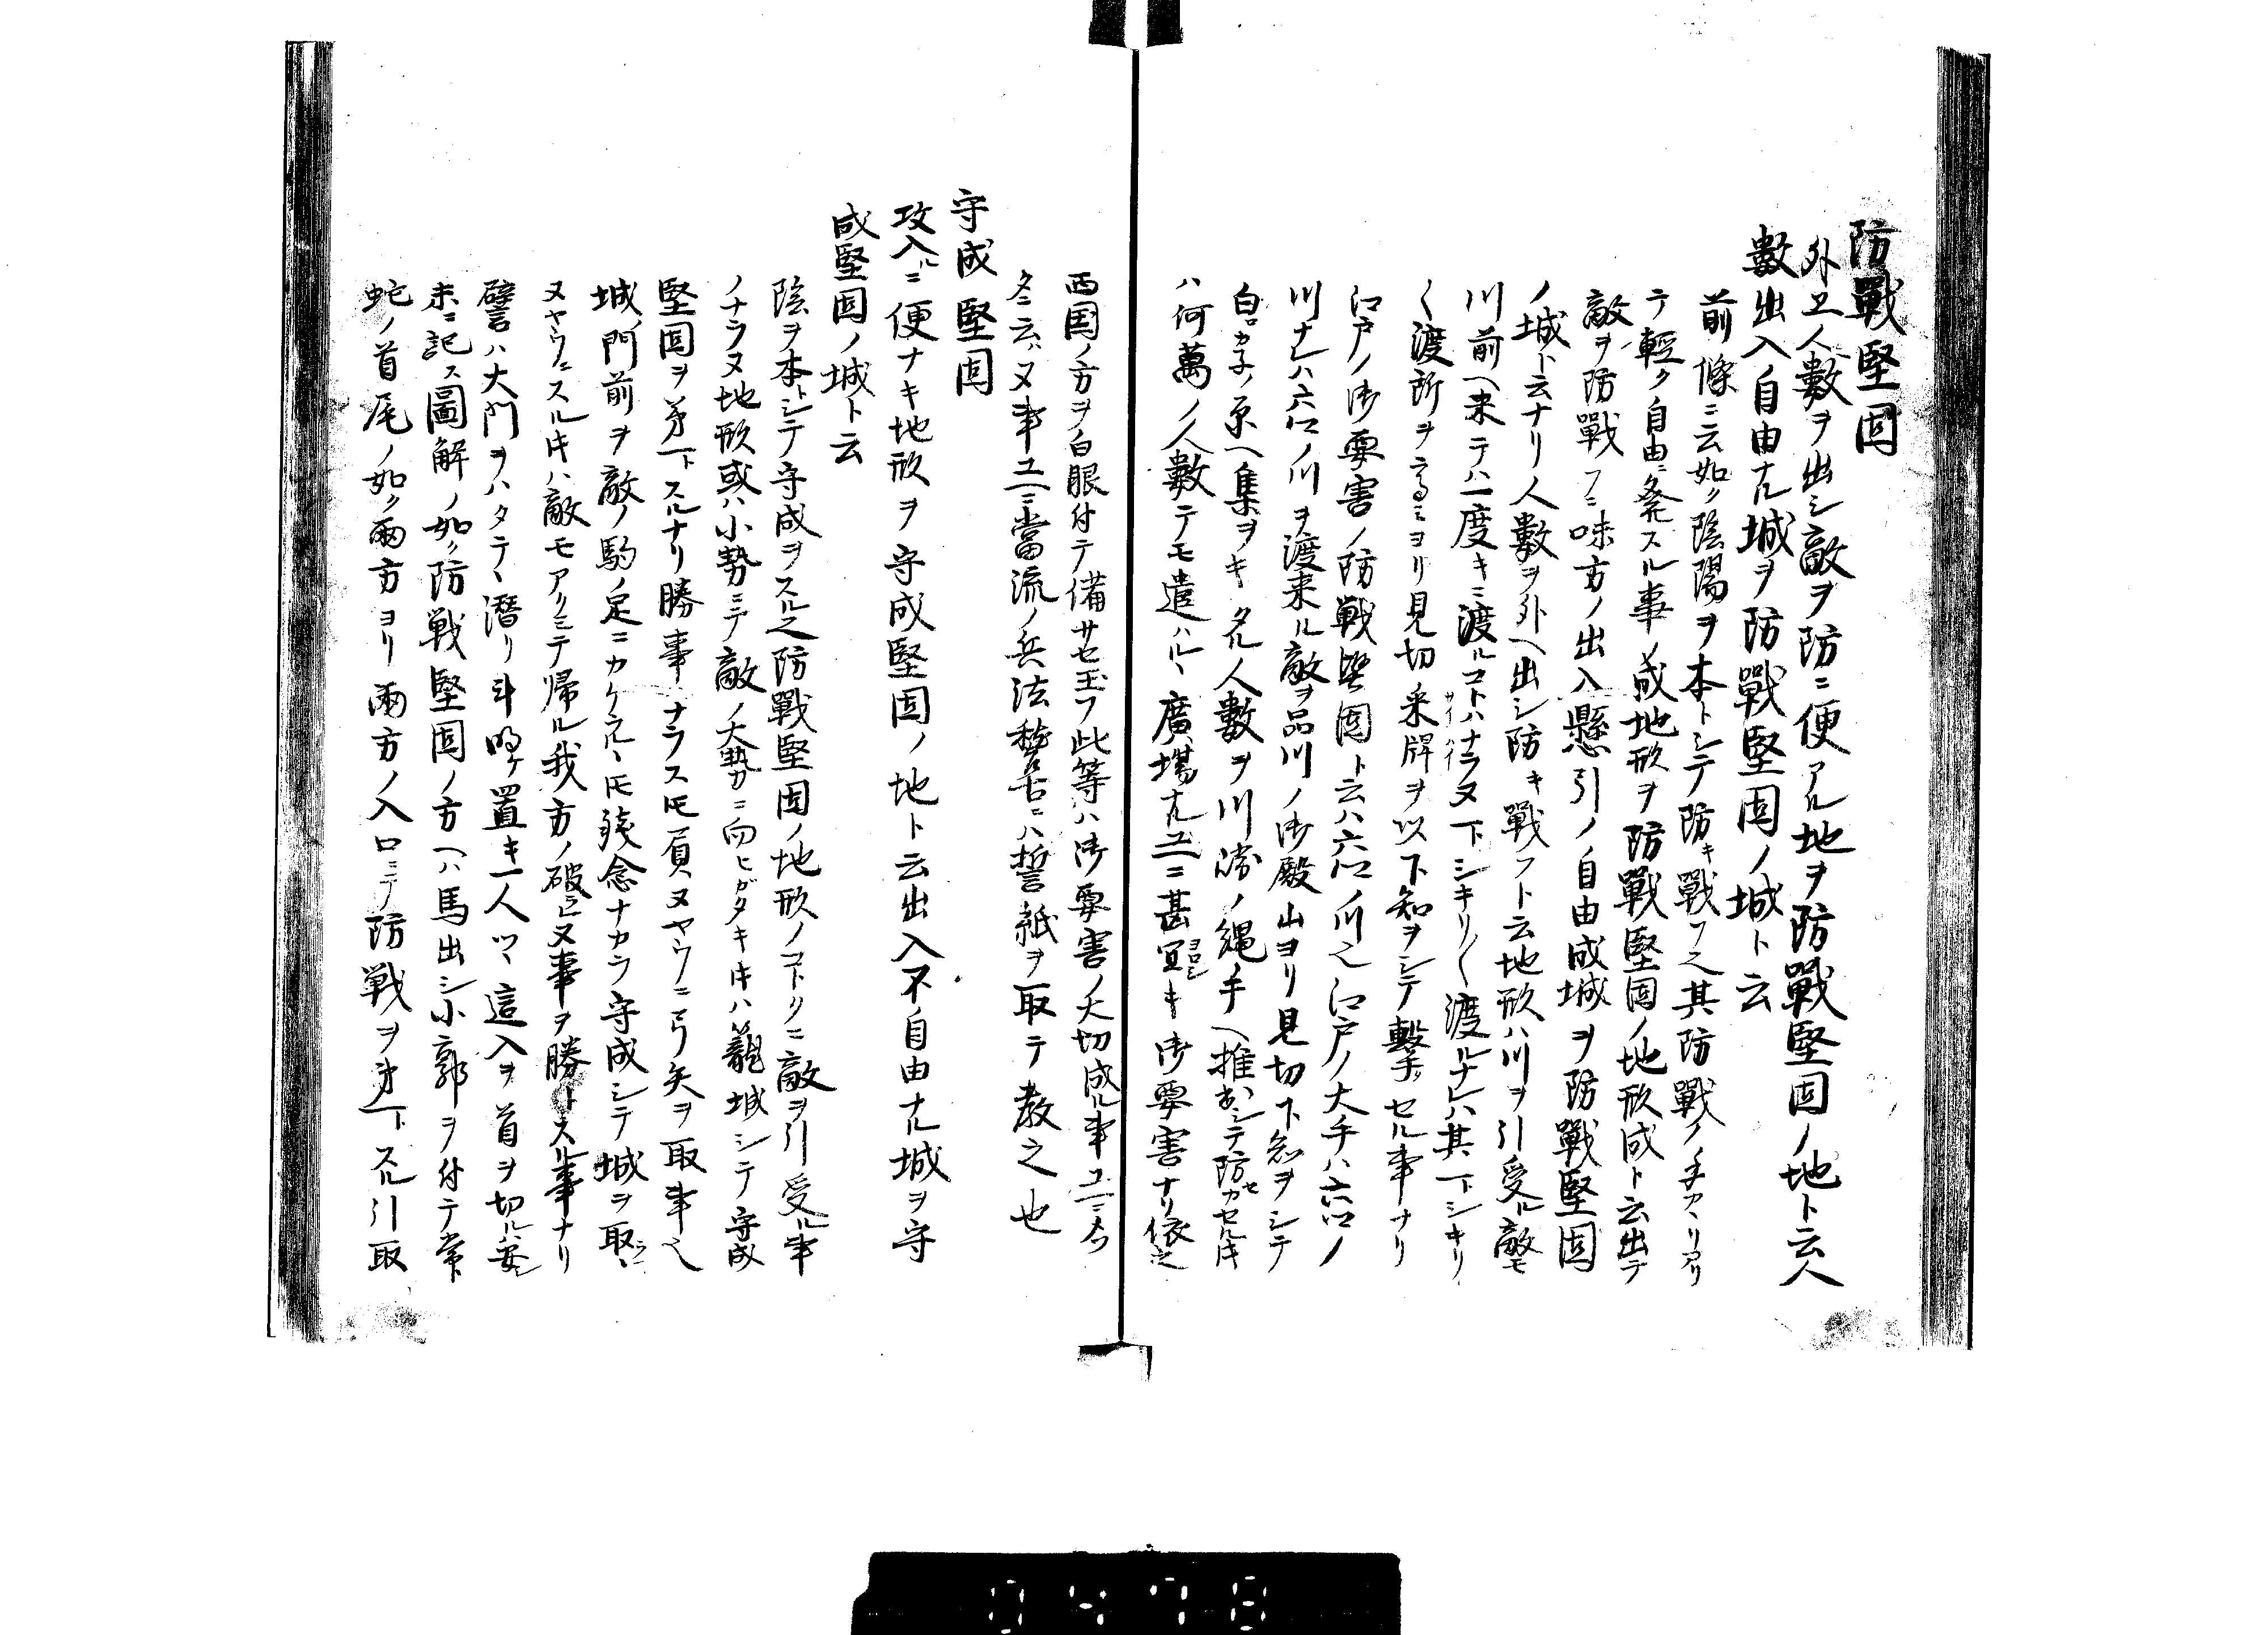 防戰堅固
外エ人數ヲ出シ敵ヲ防ニ便アル地ヲ防戰堅固ノ地ト云人
數出入自由ナル城ヲ防戰堅固ノ城ト云
前條ニ云如ク陰陽ヲ本トシテ防キ戰フ之其防戰ノ手カヽリアリ
テ輕ク自由ニ発スル事ノ成地形ヲ防戰堅固ノ地形成ト云出テ
敵ヲ防戰フニ味方ノ出入懸引ノ自由成城ヲ防戰堅固
ノ城ト云ナリ人數ヲ外ヘ出シ防キ戰フト云地形ハ川ヲ引受ル敵モ
川前ヘ来テハ一度キニ渡ルコトハナラヌ下シキリ〱渡ルナレハ其一下シキリ
〱渡所ヲ高ミヨリ見切采牌ヲ以下知ヲシテ擊セル事ナリ
江戸ノ御要害ノ防戦堅固ト云ハ六江ノ川之江戸ノ大手ハ六江ノ
川ナレハ六江ノ川ヲ渡来ル敵ヲ品川ノ御殿山ヨリ見切下知ヲシテ
白カ子ノ原ヘ集ヲキタル人數ヲ川端ノ縄手ヘ推出シテ防カセル
ハ何萬ノ人數テモ遣ハルヽ廣場ナルユヘニ甚冝キ御要害ナリ依之
西国ノ方ヲ白眼付テ備サセ玉フ此等ハ御要害ノ大切成ル事ユヘニ
タニ云ヌ事ユヘニ當流ノ兵法稽古ニハ誓紙ヲ取テ教之也
守成堅固
攻入ルニ便ナキ地形ヲ守成堅固ノ地ト云出入不自由ナル城ヲ守
成堅固ノ城ト云
陰ヲ本トシテ守成ヲスル之防戰堅固ノ地形ノコトクニ敵ヲ引受ル事
ノナラヌ地形或ハ小勢ニテ敵ノ大勢ニ向ヒガタキ片ハ籠城シテ守成
堅固ヲ第一トスルナリ勝事ナラス圧負ヌヤウノニ弓矢ヲ取事之
城門前ヲ敵ノ駒ノ足ニカケラルヽ圧残念ナカラ守成シテ城ヲ取ラレ
ヌヤウニスル片ハ敵モアクミテ帰ル我方ノ破レヌ事ヲ勝トスル事ナリ
譬ハ大門ヲハタテヽ潜リ斗明ケ置キ一人ツヽ這入ヲ首ヲ切ル
末ニ記ス圖解ノ如ク防戦堅固ノ方ヘハ馬出シ小郭ヲ付テ常
蛇ノ首尾ノ如ク両方ヨリ両方ノ入口ニテ防戦ヲ第一トスル引取
0478